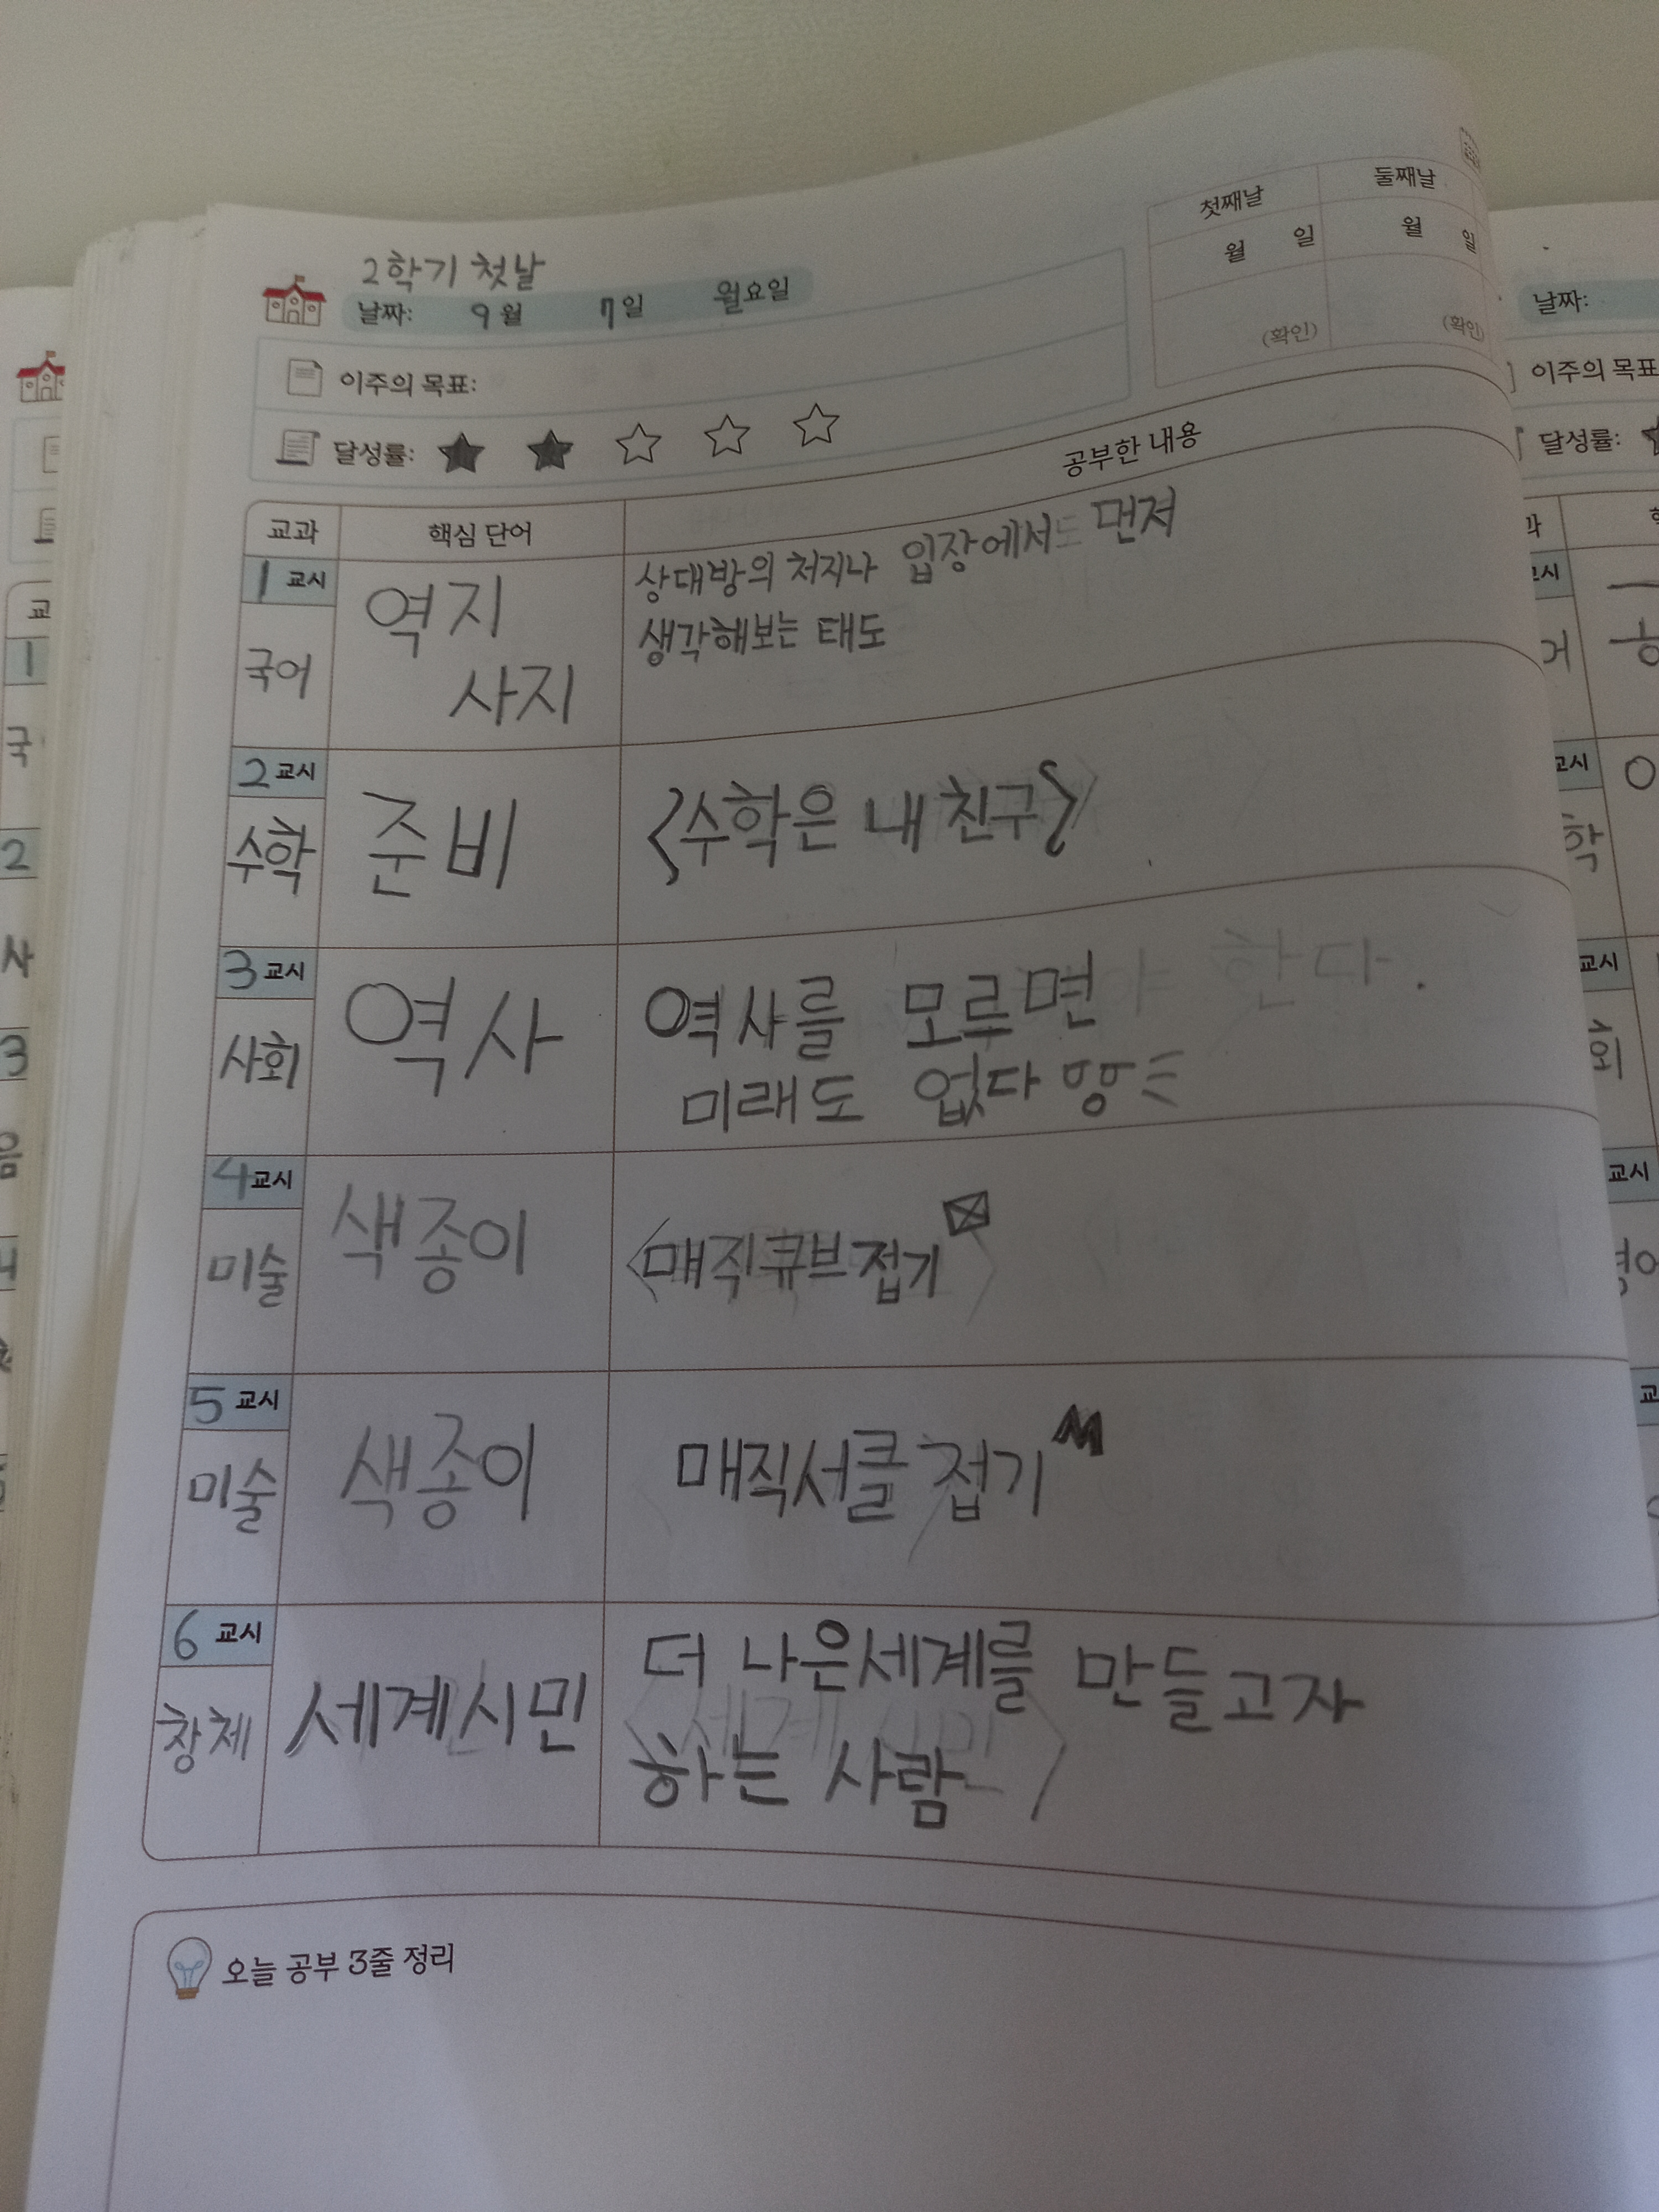 2학기 첫날
날짜: 9월 7일 월요일
첫째날 둘째날
월 일 월 일
(확인) (확인)
이주의 목표:
달성률: ★ ★ ☆ ☆ ☆
교과 핵심 단어 공부한 내용
1 교시
국어
역지
사지
상대방의 처지나 입장에서 먼저
생각해보는 태도
2 교시
수학
준비
<수학은 내 친구>
3 교시
사회
역사
역사를 모르면
미래도 없다
한다.
4 교시
미술
색종이
<매직큐브접기>
5 교시
미술
색종이
매직서클 접기
6 교시
창체
세계시민
더 나은세계를 만들고자
하는 사람
오늘 공부 3줄 정리
날짜:
이주의 목표
달성률: